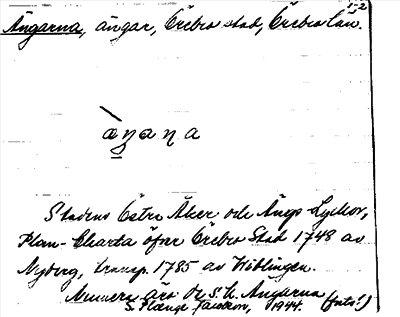 1-2
Ängarna, ängar, Örebro stad, Örebro län.
aŋaɳa
Stadens Östra Åker och Ängs-Lyckor,
Plan-Charta öfver Örebro Stad 1748 av
Nyberg, transp. 1785 av Wiblingen.
Numera äro de s. k. Ängarna
S. 1944. (foto!)